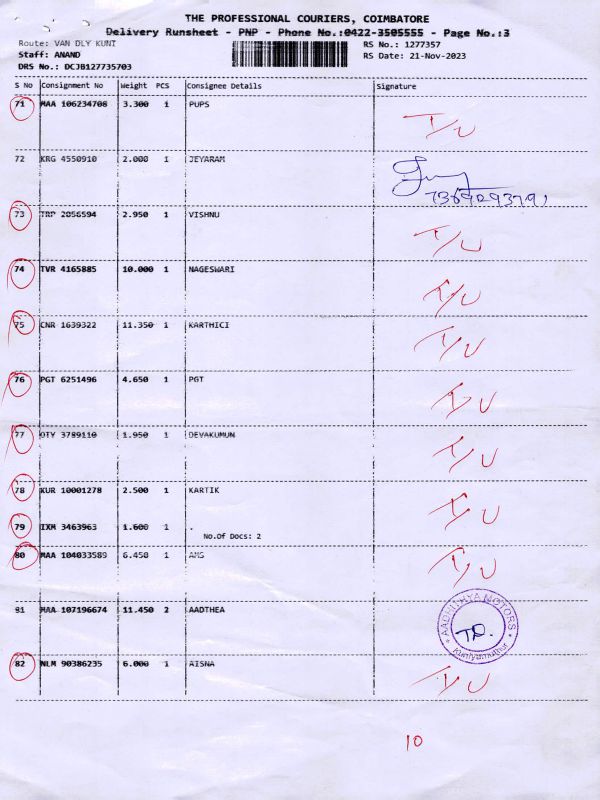 THE PROFESSIONAL COURIERS, COIMBATORE
Delivery Runsheet - PNP - Phone No.:0422-3505555 - Page No.:3
Route: VAN DLY KUNI RS No.: 1277357
Staff: ANAND RS Date: 21-Nov-2023
DRS No.: DCJB127735703
S No Consignment No Weight PCS Consignee Details Signature
71 MAA 106234708 3.300 1 PUPS I/U
72 KRG 4550910 2.000 1 JEYARAM
73 TRP 2056594 2.950 1 VISHNU I/U
74 TVR 4165885 10.000 1 NAGESWARI I/U
75 CNR 1639322 11.350 1 KARTHICI I/U
76 PGT 6251496 4.650 1 PGT I/U
77 OTY 3789110 1.950 1 DEVAKUMUN I/U
78 KUR 10001278 2.500 1 KARTIK
79 IXM 3463963 1.600 1 . I/U
No.Of Docs: 2
80 MAA 104033589 6.450 1 AMS I/U
81 MAA 107196674 11.450 2 AADTHEA
AADHITHYA MOTORS
Kuniyamuthur
82 NLM 90386235 6.000 1 AISNA I/U
10